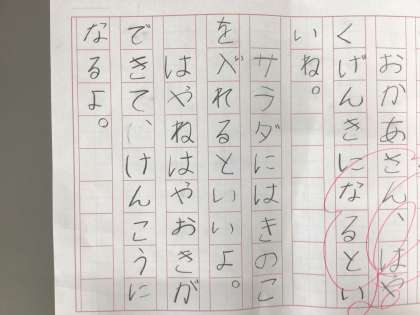 おかあさん、はや
くげんきになるとい
いね。
サラダにはきのこ
を入れるといいよ。
はやねはやおきが
できて、けんこうに
なるよ。